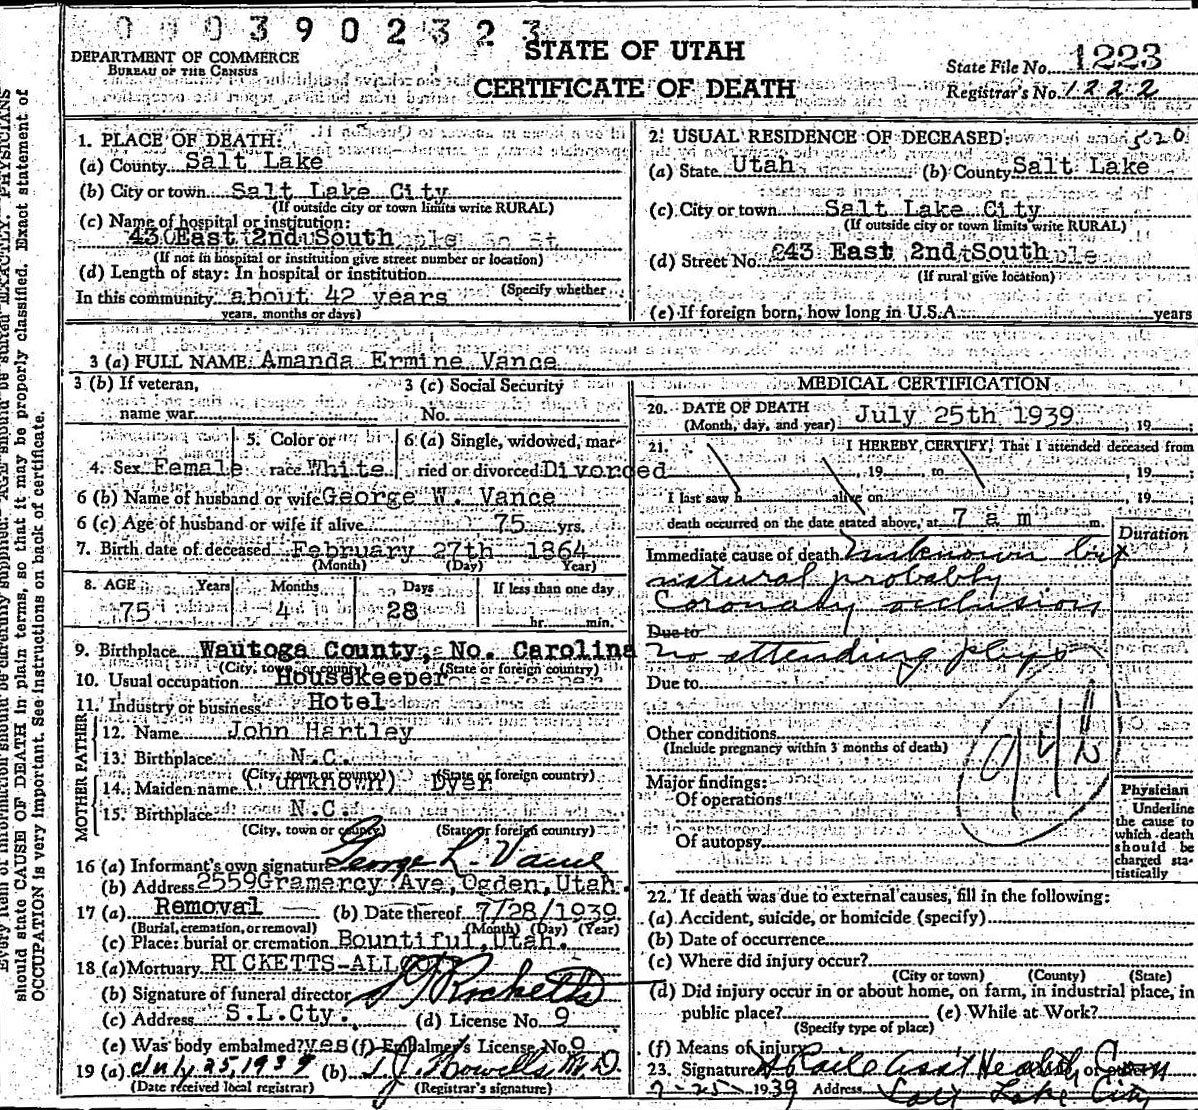 0003902323
DEPARTMENT OF COMMERCE
BUREAU OF THE CENSUS
STATE OF UTAH
CERTIFICATE OF DEATH
State File No. 1223
Registrar's No. 1222
1. PLACE OF DEATH:
(a) County Salt Lake
(b) City or town Salt Lake City
(If outside city or town limits write RURAL)
(c) Name of hospital or institution:
430 East 2nd South
(If not in hospital or institution give street number or location)
(d) Length of stay: In hospital or institution
(Specify whether
In this community about 42 years
years, months or days)
2. USUAL RESIDENCE OF DECEASED: 520
(a) State Utah (b) County Salt Lake
(c) City or town Salt Lake City
(If outside city or town limits write RURAL)
(d) Street No. 243 East 2nd South
(If rural give location)
(e) If foreign born, how long in U.S.A. years
3 (a) FULL NAME Amanda Ermine Vance
3 (b) If veteran,
name war
3 (c) Social Security
No.
4. Sex Female
5. Color or
race White
6 (a) Single, widowed, mar-
ried or divorced Divorced
6 (b) Name of husband or wife George W. Vance
6 (c) Age of husband or wife if alive 75 yrs.
7. Birth date of deceased February 27th 1864
(Month) (Day) Year)
8. AGE Years Months Days If less than one day
75 4 28 hr. min.
9. Birthplace Wautoga County, No. Carolina
(City, town or county) (State or foreign country)
10. Usual occupation Housekeeper
11. Industry or business Hotel
FATHER
12. Name John Hartley
13. Birthplace N.C.
(City, town or county) (State or foreign country)
MOTHER
14. Maiden name (unknown) Dyer
15. Birthplace N.C.
(City, town or county) (State or foreign country)
16 (a) Informant's own signature George L. Vance
(b) Address 2559 Gramercy Ave, Ogden, Utah.
17 (a) Removal (b) Date thereof 7/28/1939
(Burial, cremation, or removal) (Month) (Day) (Year)
(c) Place: burial or cremation Bountiful, Utah.
18 (a) Mortuary RICKETTS-ALLCOTT
(b) Signature of funeral director Ricketts
(c) Address S.L.Cty. (d) License No. 9
(e) Was body embalmed? yes (f) Embalmer's License No. 9
19 (a) July 25, 1939 (b) T.J. Howells M.D.
(Date received local registrar) (Registrar's signature)
MEDICAL CERTIFICATION
20. DATE OF DEATH
(Month, day, and year) July 25th 1939, 19
21. I HEREBY CERTIFY, That I attended deceased from
, 19 to , 19
I last saw h alive on , 19
death occurred on the date stated above, at 7 a m m.
Duration
Immediate cause of death Unknown but
natural probably
Coronary occlusion
Due to
no attending phys
Due to
Other conditions
(Include pregnancy within 3 months of death)
94b
Major findings:
Of operations
Of autopsy
Physician
Underline
the cause to
which death
should be
charged sta-
tistically
22. If death was due to external causes, fill in the following:
(a) Accident, suicide, or homicide (specify)
(b) Date of occurrence
(c) Where did injury occur?
(City or town) (County) (State)
(d) Did injury occur in or about home, on farm, in industrial place, in
public place? (e) While at Work?
(Specify type of place)
(f) Means of injury
23. Signature Ass't Health Com
7-25- 1939 Address Salt Lake City
should state CAUSE OF DEATH in plain terms, so that it may be properly classified. Exact statement of
OCCUPATION is very important. See instructions on back of certificate.